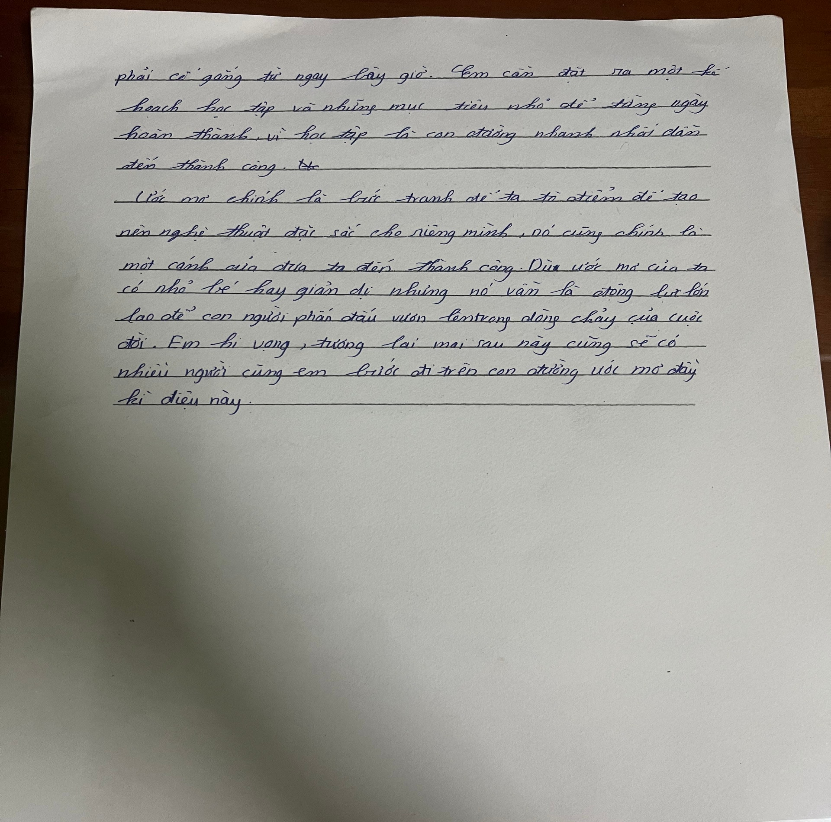 phải cố gắng từ ngay bây giờ. Em cần đặt ra một kế
hoạch học tập và những mục tiêu nhỏ để từng ngày
hoàn thành, vì học tập là con đường nhanh nhất dẫn
đến thành công.
Ước mơ chính là bức tranh để ta tô điểm để tạo
nên nghệ thuật đặc sắc cho riêng mình, nó cũng chính là
một cánh cửa đưa ta đến thành công. Dù ước mơ của ta
có nhỏ bé hay giản dị nhưng nó vẫn là động lực lớn
lao để con người phấn đấu vươn lên trong dòng chảy của cuộc
đời. Em hi vọng, tương lai mai sau này cũng sẽ có
nhiều người cùng em bước đi trên con đường ước mơ đầy
kì diệu này.